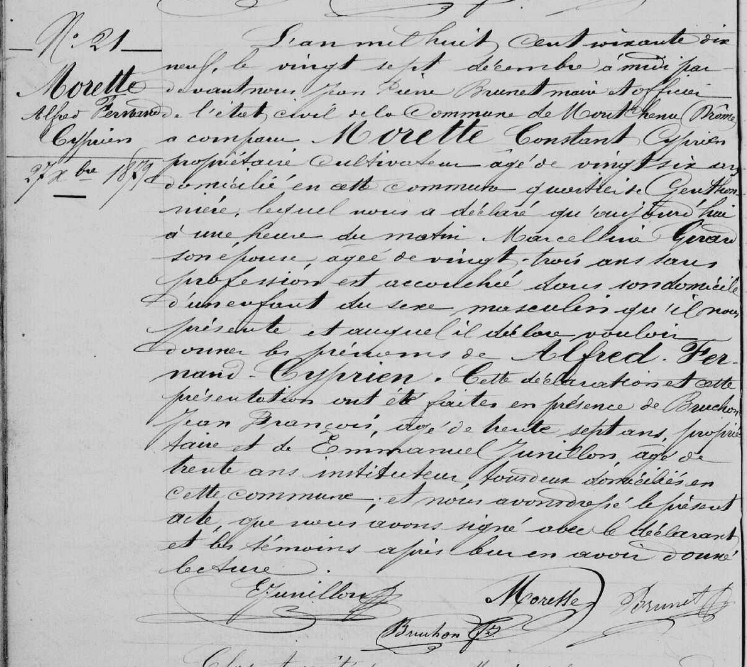 N.° 21
Morette
Alfred Fernand
Cyprien
27 Xbre 1879
L'an mil huit cent soixante dix
neuf, le vingt sept décembre à midi par
devant nous Jean Pierre Brunet maire et officier
de l'état civil de la Commune de Montchenu (Drôme)
a comparu Morette Constant Cyprien
propriétaire Cultivateur âgé de vingt six ans
domicilié en cette commune quartier de Genthon
nière, lequel nous a déclaré qu'aujourd'hui
à une heure du matin Marcelline Girard
son épouse, agée de vingt-trois ans sans
profession, est accouchée dans son domicile
d'un enfant du sexe masculin qu'il nous
présente et auquel il déclare vouloir
donner les prénoms de Alfred-Fer-
nand-Cyprien. Cette déclaration et cette
présentation ont été faites en présence de Bruchon
Jean François, agé de trente sept ans, proprié
taire et de Emmanuel Junillon, agé de
trente ans instituteur, tous deux domiciliés en
cette commune, et nous avons dressé le présent
acte, que nous avons signé avec le déclarant
et les témoins après leur en avoir donné
lecture.
EJunillon Morette Brunet
Bruchon